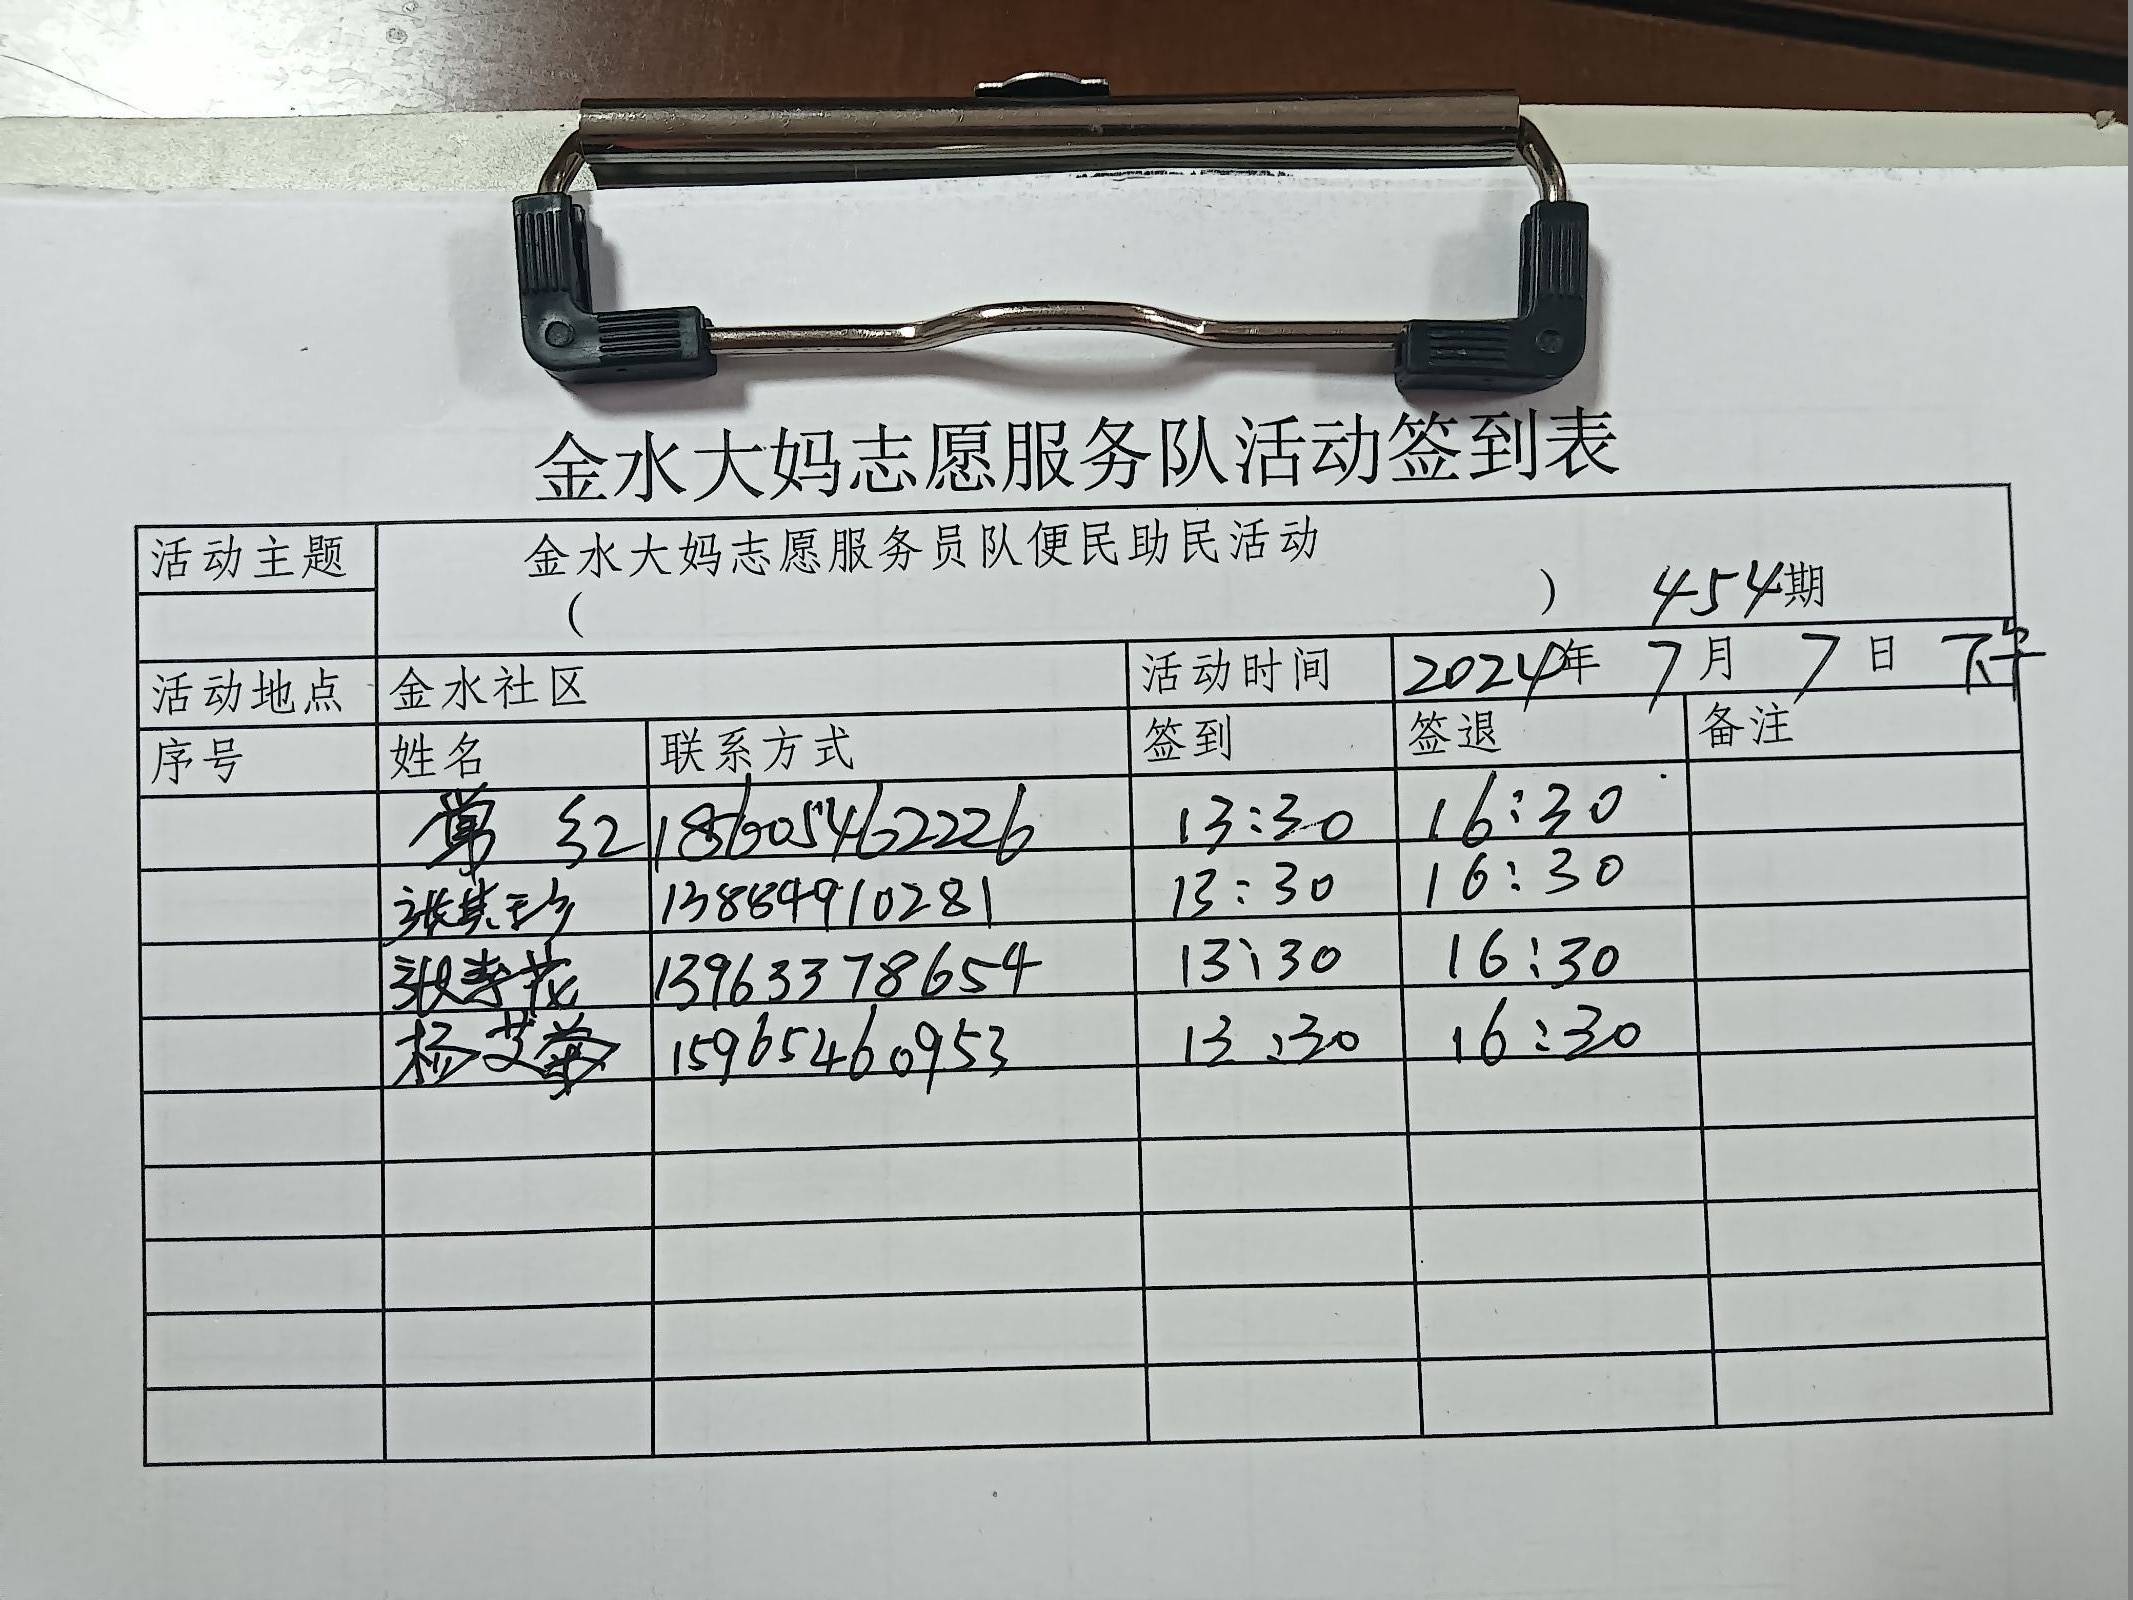 金水大妈志愿服务队活动签到表
活动主题 金水大妈志愿服务员队便民助民活动
( ) 454期
活动地点 金水社区 活动时间 2024年 7月 7日 下午
序号 姓名 联系方式 签到 签退 备注
常 红 18605462226 13:30 16:30
张 13884910281 13:30 16:30
张 花 13963378654 13:30 16:30
杨艾菊 15965460953 13:30 16:30